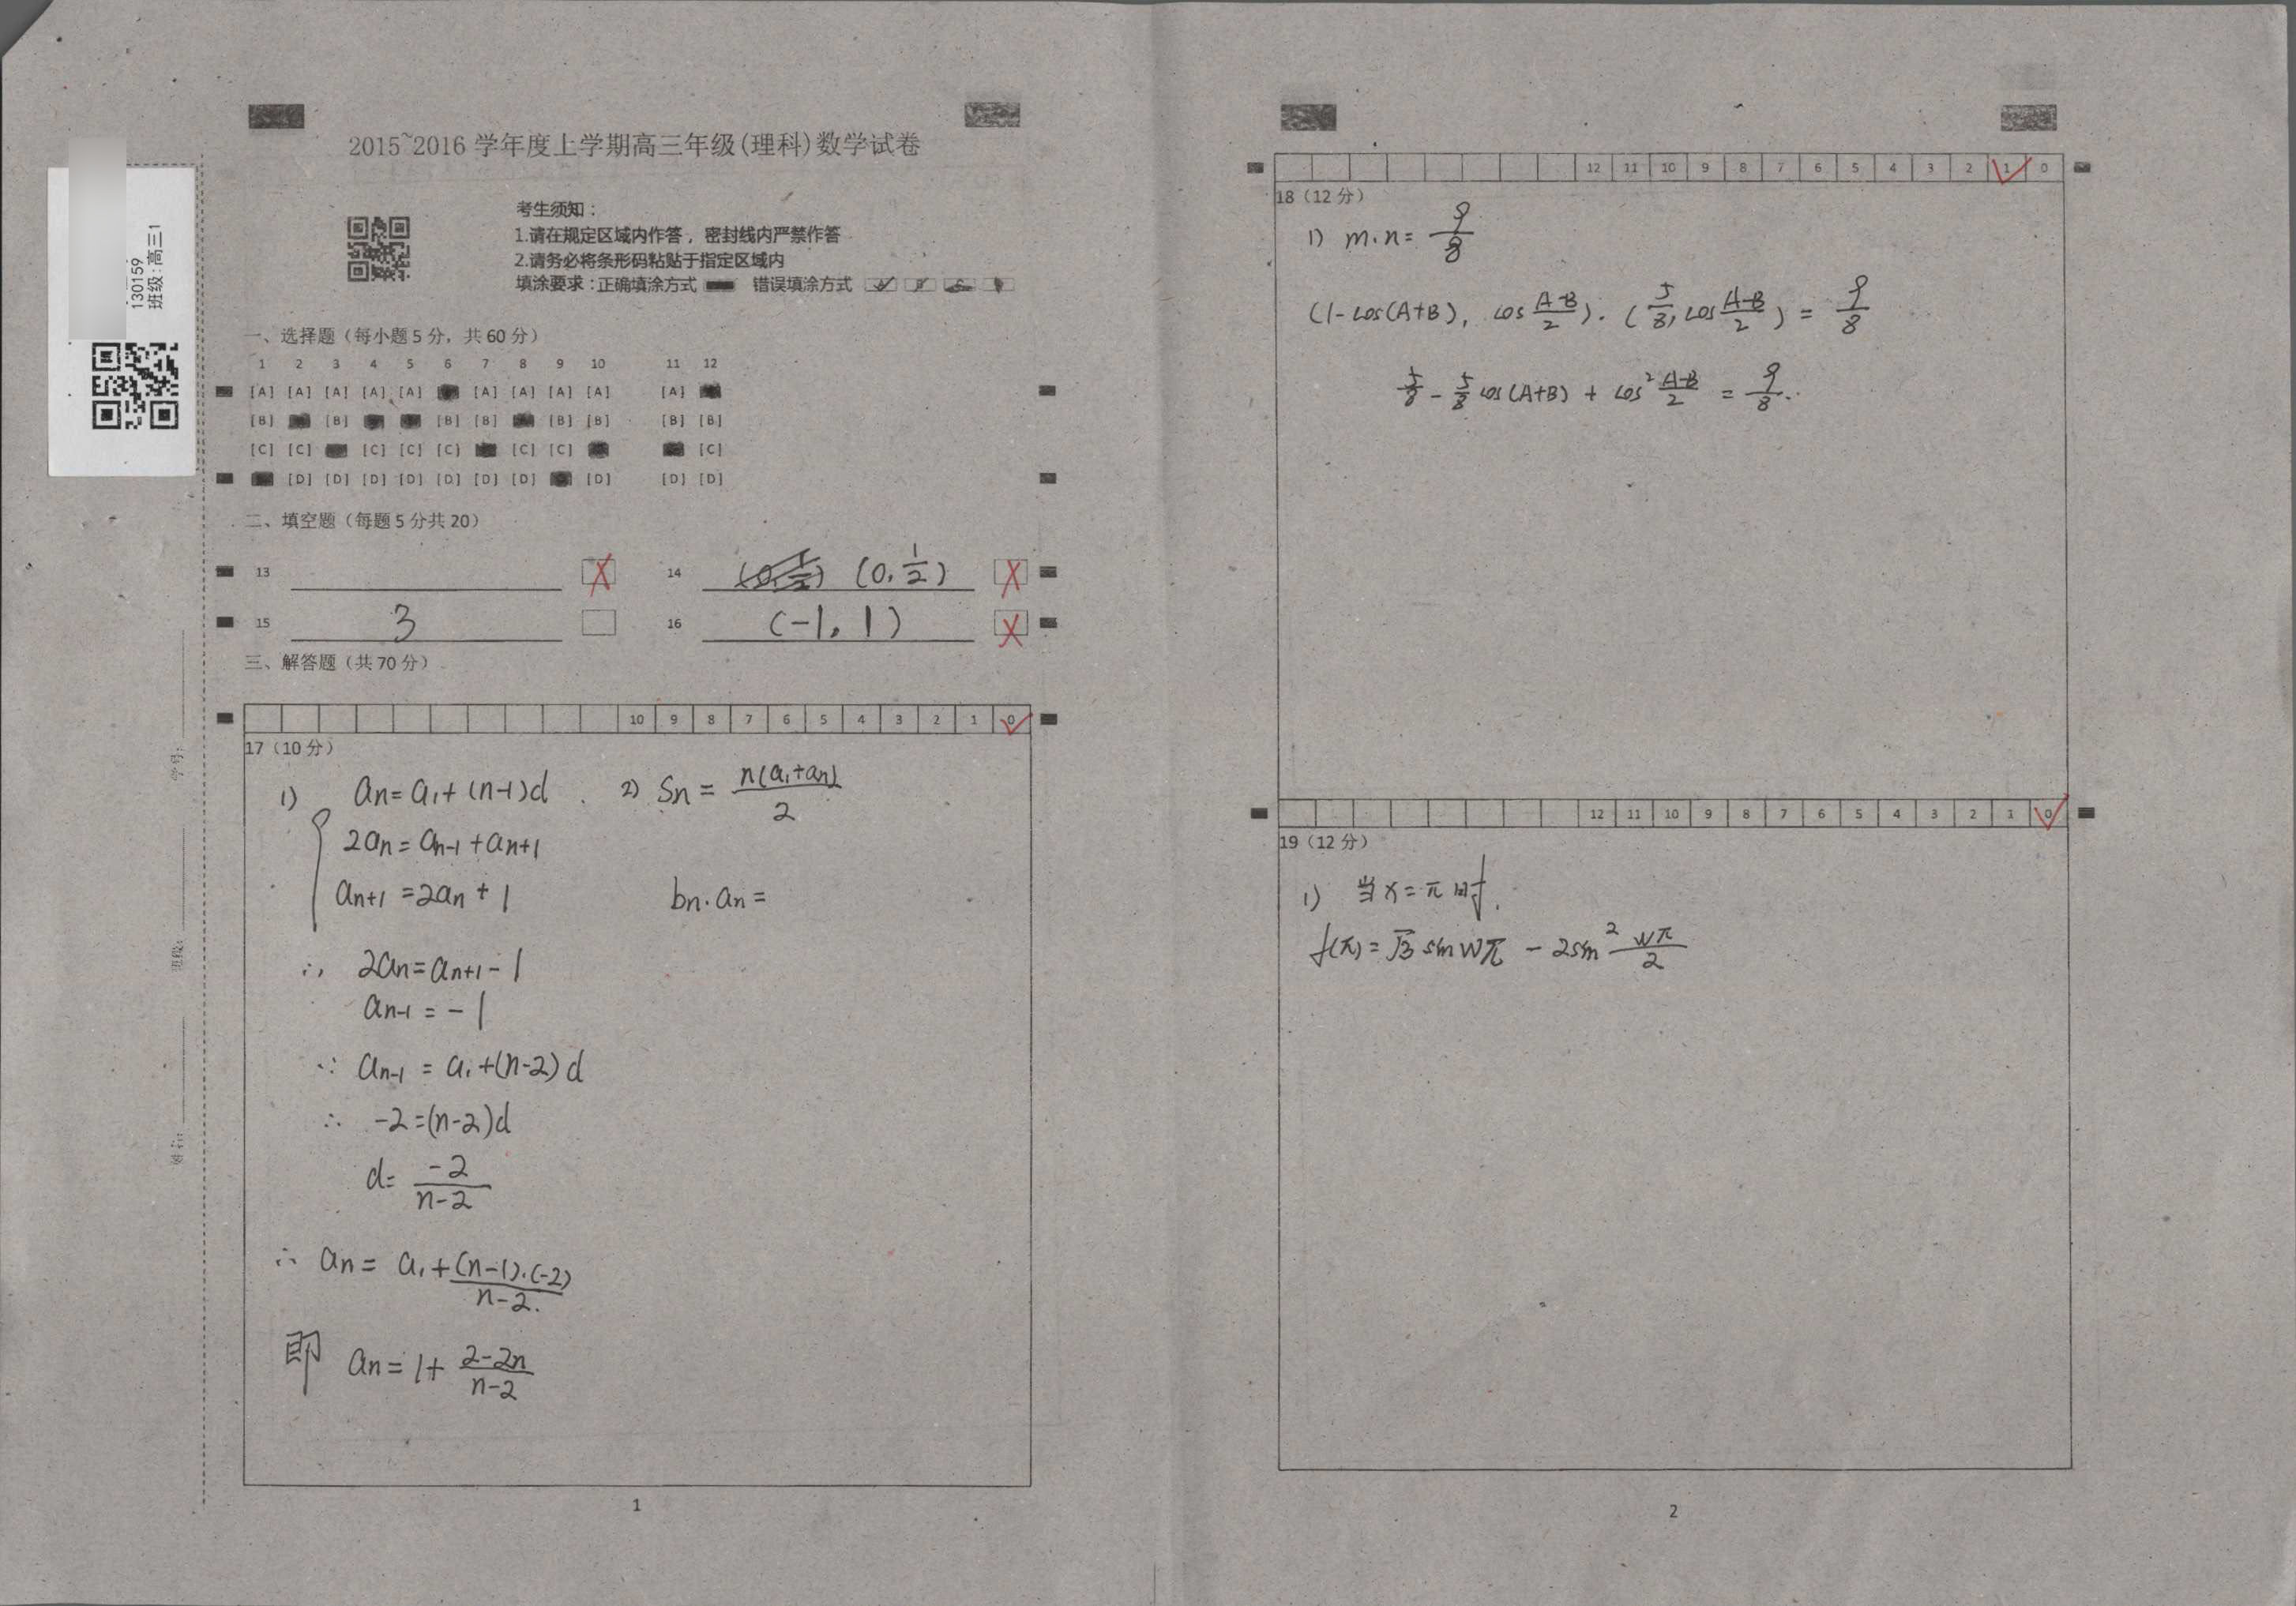 2015~2016 学年度上学期高三年级(理科)数学试卷
130159
班级:高三1
考生须知:
1.请在规定区域内作答,密封线内严禁作答
2.请务必将条形码粘贴于指定区域内
填涂要求:正确填涂方式 错误填涂方式
一、选择题(每小题5分,共60分)
1 2 3 4 5 6 7 8 9 10 11 12
[A] [A] [A] [A] [A] [A] [A] [A] [A] [A]
[B] [B] [B] [B] [B] [B] [B] [B]
[C] [C] [C] [C] [C] [C] [C] [C]
[D] [D] [D] [D] [D] [D] [D] [D] [D] [D]
二、填空题(每题5分共20)
13
14 (0,1/2)
15 3
16 (-1,1)
三、解答题(共70分)
10 9 8 7 6 5 4 3 2 1 0
17(10分)
1) an=a1+(n-1)d
2an=an-1+an+1
an+1=2an+1
∴ 2an=an+1-1
an-1=-1
∵ an-1=a1+(n-2)d
∴ -2=(n-2)d
d=-2/(n-2)
∴ an=a1+(n-1)·(-2)/(n-2)
即 an=1+(2-2n)/(n-2)
2) Sn=n(a1+an)/2
bn·an=
学号:
班级:
姓名:
1
12 11 10 9 8 7 6 5 4 3 2 1 0
18(12分)
1) m·n=9/8
(1-cos(A+B), cos(A-B)/2)·(5/8, cos(A-B)/2)=9/8
5/8-5/8cos(A+B)+cos²(A-B)/2=9/8
12 11 10 9 8 7 6 5 4 3 2 1 0
19(12分)
1) 当x=π时,
f(π)=√3sinwπ-2sin²wπ/2
2